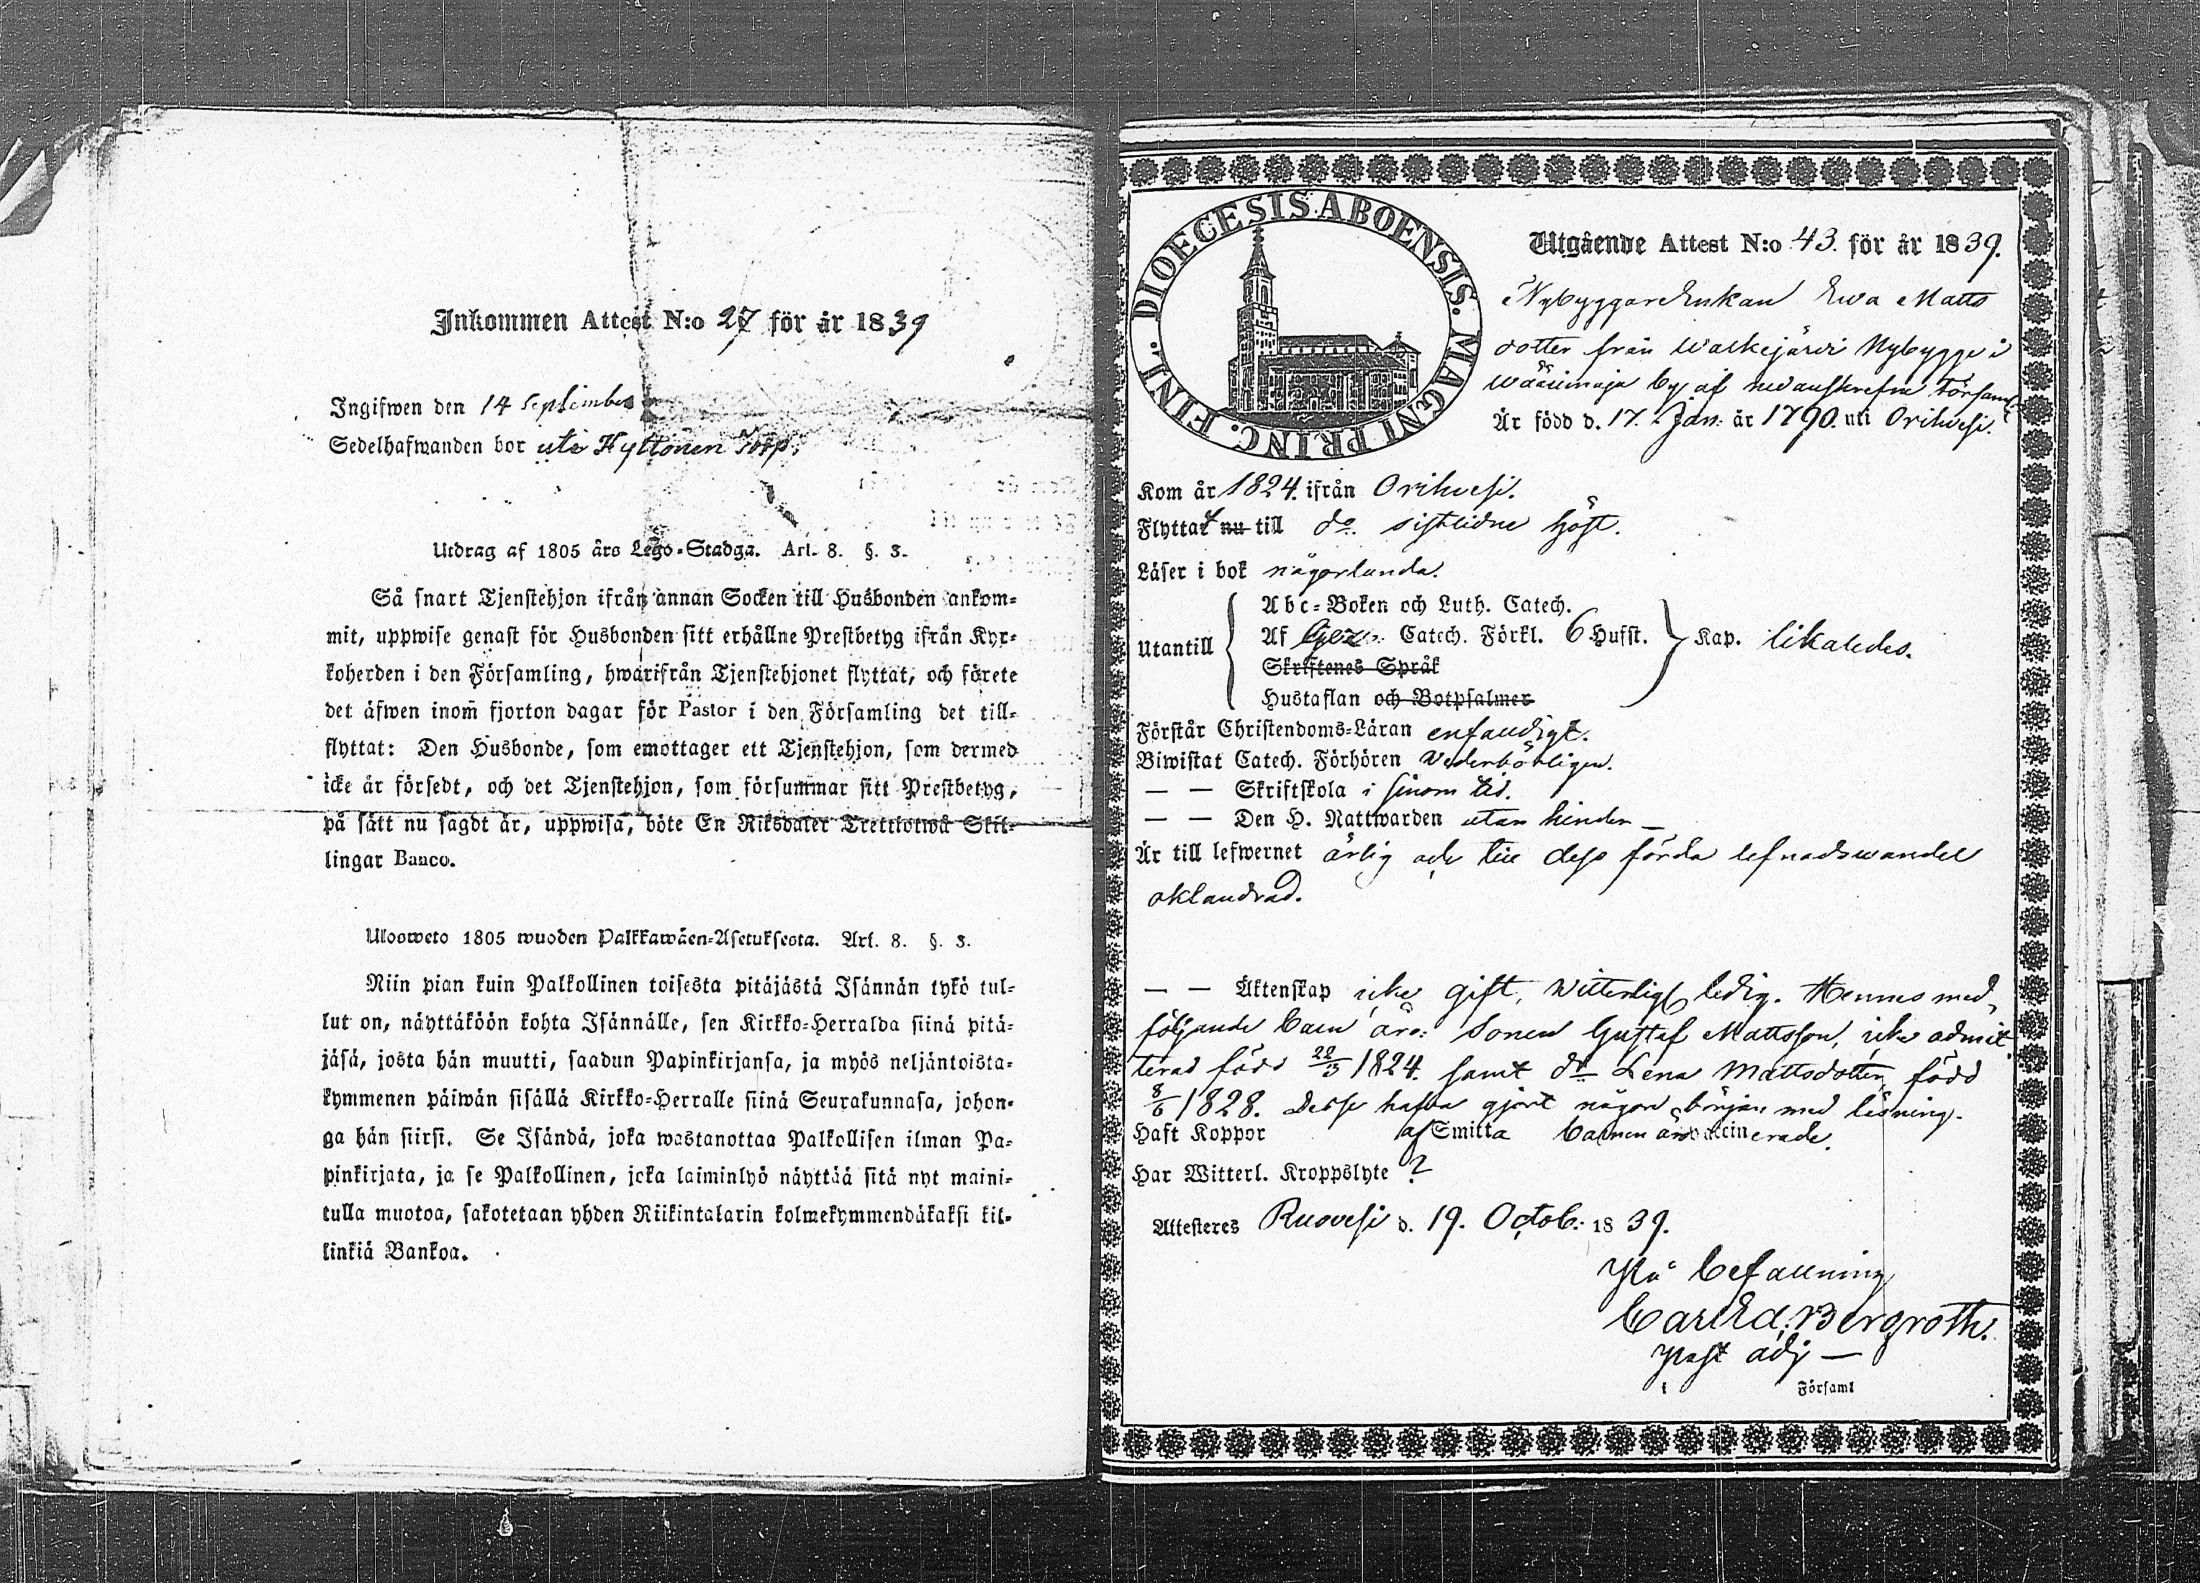 Inkommen Attest N:o 27 för år 1839
Ingifwen den 14 September
Sedelhafwanden bor uti Hyttönen Torp.
Utdrag af 1805 års Lego-Stadga. Art. 8. §. 3.
Så snart Tjenstehjon ifrån annan Socken till Husbonden ankom-
mit, uppwise genast för Husbonden sitt erhållne Prestbetyg ifrån Kyr-
koherden i den Församling, hwarifrån Tjenstehjonet flyttat, och förete
det äfwen inom̄ fjorton dagar för Pastor i den Församling det till-
flyttat: Den Husbonde, som emottager ett Tjenstehjon, som dermed
icke är försedt, och det Tjenstehjon, som försummar sitt Prestbetyg,
på sätt nu sagdt är, uppwisa, böte En Riksdaler Trettiotwå Skil-
lingar Banco.
Uloosweto 1805 wuoden Palkkawäen-Asetuksesta. Art. 8. §. 3.
Niin pian kuin Palkollinen toisesta pitäjästä Isännän tykö tul-
lut on, näyttäköön kohta Isännälle, sen Kirkko-Herralda siinä pitä-
jäsä, josta hän muutti, saadun Papinkirjansa, ja myös neljäntoista-
kymmenen päiwän sisällä Kirkko-Herralle siinä Seurakunnasa, johon-
ga hän siirsi. Se Isändä, joka wastanottaa Palkollisen ilman Pa-
pinkirjata, ja se Palkollinen, joka laiminlyö näyttää sitä nyt maini-
tulla muotoa, sakotetaan yhden Riikintalarin kolmekymmendäkaksi kil-
linkiä Bankoa.
DIOECESIS ABOENSIS. MAGNI PRINC. FINL.
Utgående Attest N:o 43. för år 1839.
Nybyggareenkan Ewa Matts
dotter från Walkejärwi Nybygge i
Wääsimaja by af nedanskrefne Församl
Är född d. 17. Jan. år 1790. uti Orihvesi.
Kom år 1824. ifrån Orihvesi.
Flyttat nu till do. sistlidne höst.
Läser i bok någorlunda.
Abc-Boken och Luth. Catech.
Utantill Af Gez. Catech. Förkl. 6 Hufst. Kap. likaledes.
Skriftenes Språk
Hustaflan och Botpsalmer
Förstår Christendoms-Läran enfaldigt.
Biwistat Catech. Förhören Vederbörligen.
— — Skriftskola i sinom tid.
— — Den H. Nattwarden utan hinder —
Är till lefwernet ärlig och till dess förda lefnadswandel
oklandrad.
— — Äktenskap icke gift, witterligt ledig. Hennes med
följande barn äro: Sonen Gustaf Mattsson, icke admit
terad född 22/3 1824. samt dr. Lena Mattsdotter, född
8/6 1828. Desse hafva gjort någon början med läsning.
Haft Koppor af Smitta barnen äro vaccinerade.
Har Witterl. Kroppslyte ?
Attesteres Ruovesi d. 19. Octob: 1839.
På befallning
Carl Ed. Bergroth.
Past adj —
i Församl